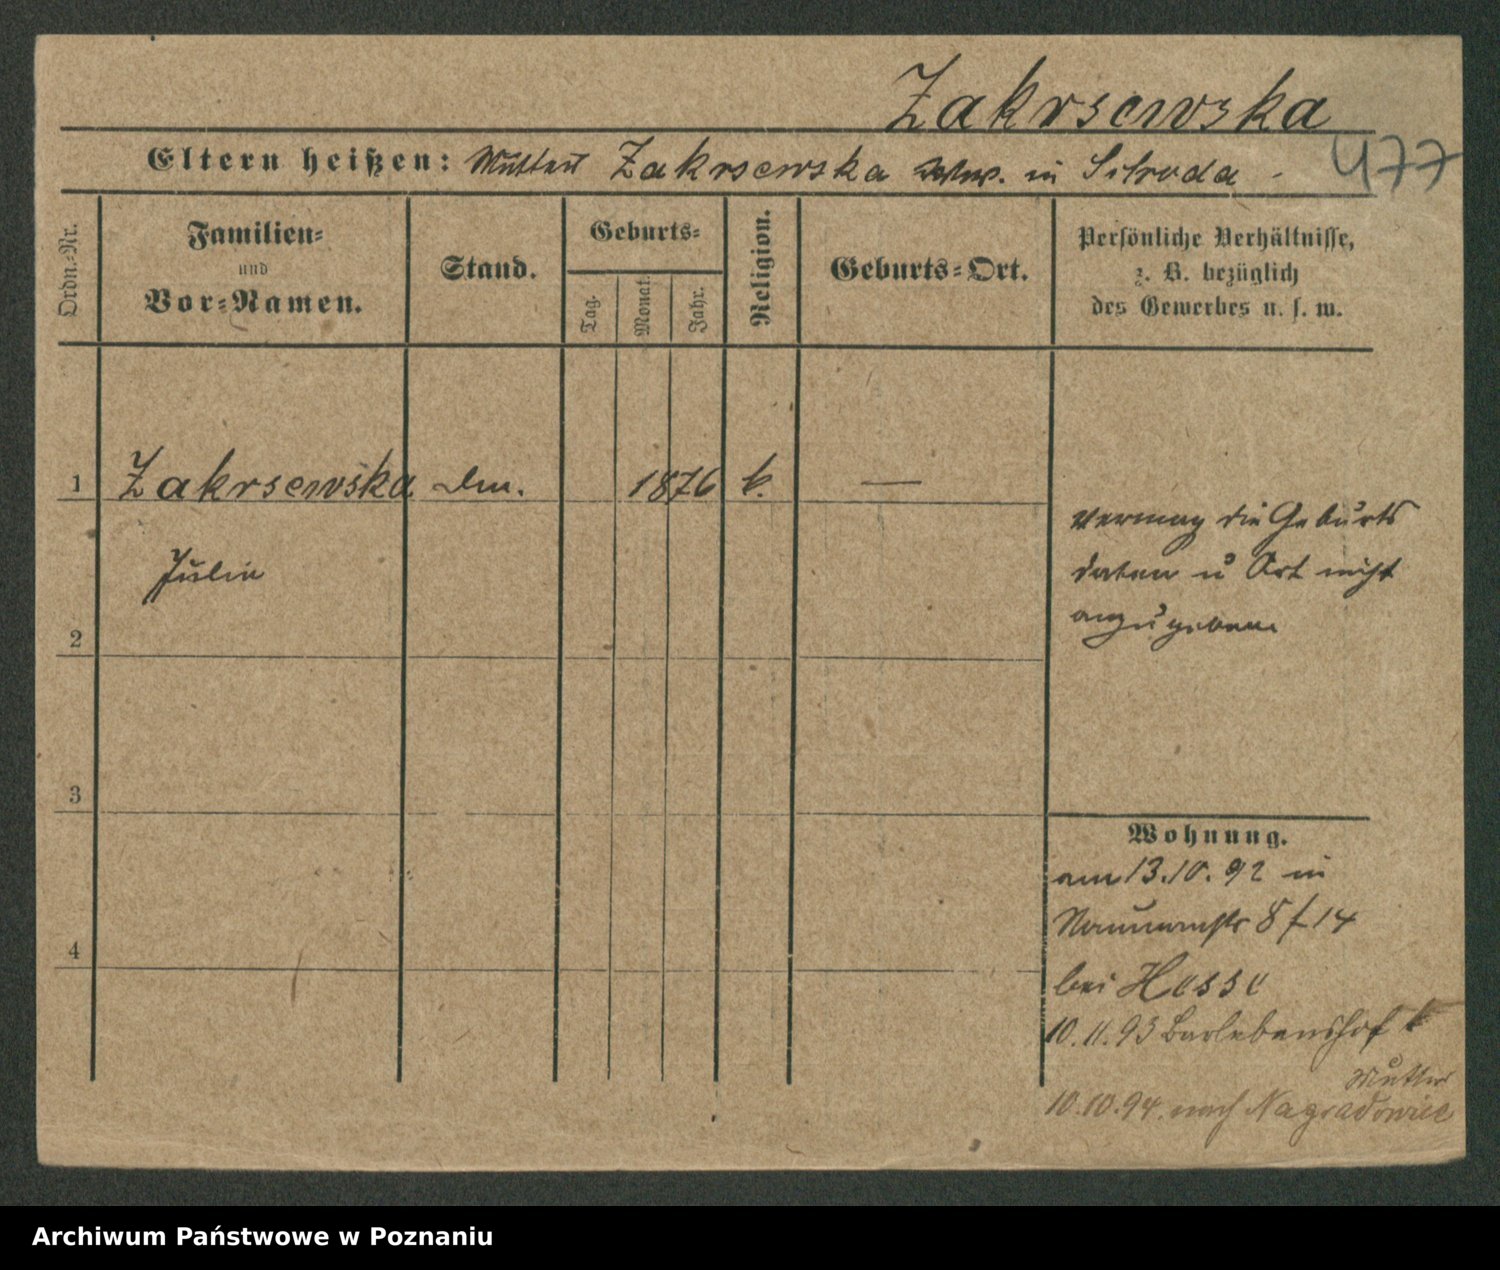 Zakrsewska
Eltern heißen: Mutter Zakrsewska in Schroda -
477
Ordn.-Nr.
Familien-
und
Vor-Namen.
Stand.
Geburts-
Tag.
Monat.
Jahr.
Religion.
Geburts-Ort.
Persönliche Verhältnisse,
z. B. bezüglich
des Gewerbes u. s. w.
1 Zakrsewska 1876 k. —
Julie
vermag die Geburts
daten u Ort nicht
anzugeben
2
3
4
Wohnung.
am 13.10.92 in
Naumannstr 8 f 14
bei Hesse
10.11.93 Bartebenshof
Mutter
10.10.94. nach Nagradowice
Archiwum Państwowe w Poznaniu